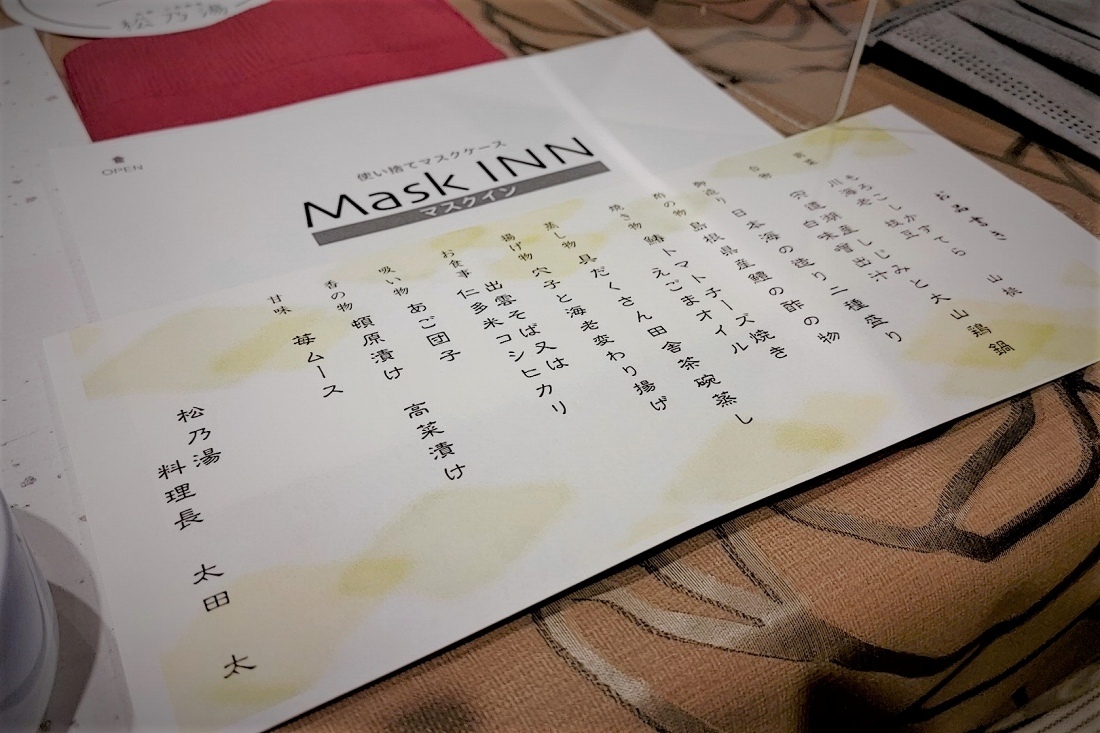 松乃湯
OPEN
使い捨てマスクケース
Mask INN
マスクイン
お品書き
前菜 もろこしかすてら 山桃
川海老 枝豆
台物 宍道湖産しじみと大山鶏鍋
白味噌出汁
御造り 日本海の造り二種盛り
酢の物 島根県産鱧の酢の物
焼き物 鰆トマトチーズ焼き
えごまオイル
蒸し物 具だくさん田舎茶碗蒸し
揚げ物 穴子と海老変わり揚げ
お食事 出雲そば又は
仁多米コシヒカリ
吸い物 あご団子
香の物 頓原漬け 高菜漬け
甘味 苺ムース
松乃湯
料理長 太田 太